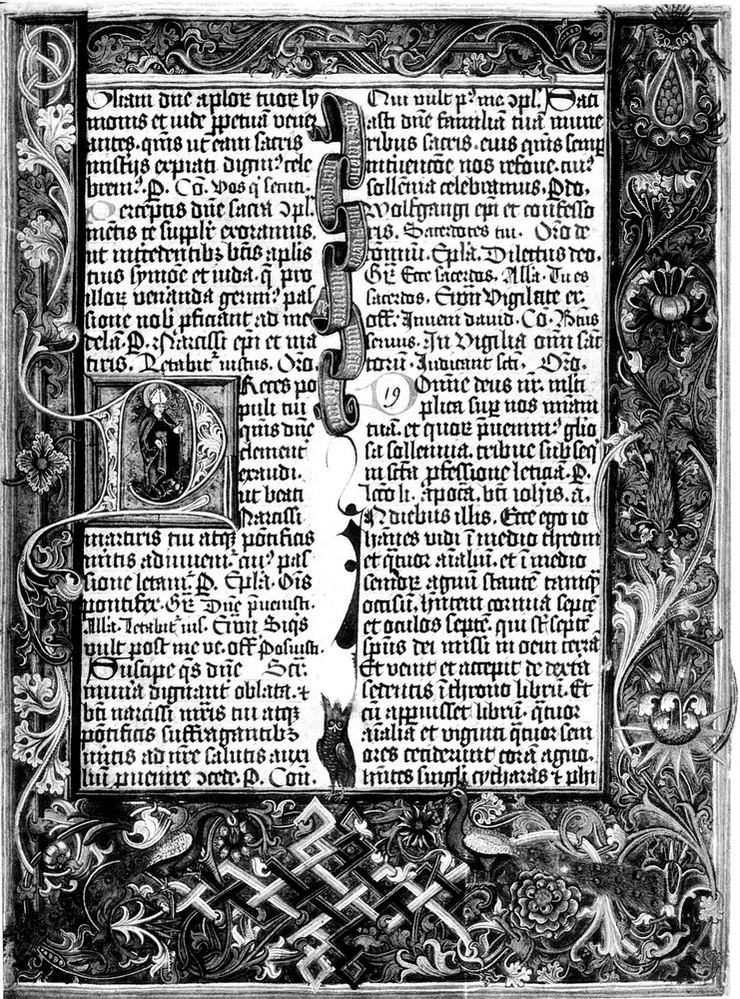 Gliam dne aplor tuor sy
monis et iude ppetua vener
antes. qms ut eam sacris
mistijs expiati digni9 cele
brem9. P. Co. Vos q secuti.
Perceptis dne sacra mpl
mctis te supplr exoramus.
ut intercedentibz btis aplis
tuis symoe et iuda. q pro
illor veneranda gerim9 pas
sione nobis pficiant ad me
dela. P. Narcissi epi et ma
tiris. Letabit iustus. Oro.
Preces po
puli tui
qms dne
clement
exaudi.
ut beati
Narcissi
martiris tui atqz pontificis
mitis adiuuem cui9 pas
sione letam P. Epla. Ois
pontifex. Gr. Dne preuenisti.
Alla. Letabit ius. Ewn Siqs
vult post me ve. off. Posuisti.
Suscipe qs dne Scr.
munera dignant oblata. et
bti narcissi mris tui atqz
pontificis suffragantibz
mitis ad nre salutis auxi
liu puenire 9cede. P. Com.
Qui vult p9 me 9pl. Saci
asti dne familia tua mune
ribus sacris. eius qms semp
intuencoe nos refoue. cui9
sollenia celebramus. Pro.
Wolfgangi epi et confesso
ris. Sacerdotes tui. Oro de
comuni. Epla. Dilectus deo.
Gr. Ecce sacerdos. Alla. Tu es
sacerdos. Ewn Vigilate et.
off. Inueni dauid. Co. Btus
seruus. In Vigilia omi sac
torum. Iudicant sci. Oro.
19
Domine deus nr. multi
plica sup nos miam
tua. et quor preuenim9 glio
sa sollennia. tribue subseq
in scta pfessione leticia. P.
lcto li. apoca. bti iohis. a.
In diebus illis. Ecce ego io
hanes vidi i medio throni
et qtuor aialiu. et i medio
senior agnu stante tamqz
occisu. hntem cornua septe
et oculos septe. qui st septe
spus dei missi in oem terra
Et venit et accepit de dextra
sedentis i throno libru. Et
cu apuisset libru. qtuor
aialia et viginti qtuor seni
ores ceciderunt cora agno.
hntes singli cytharas et phi